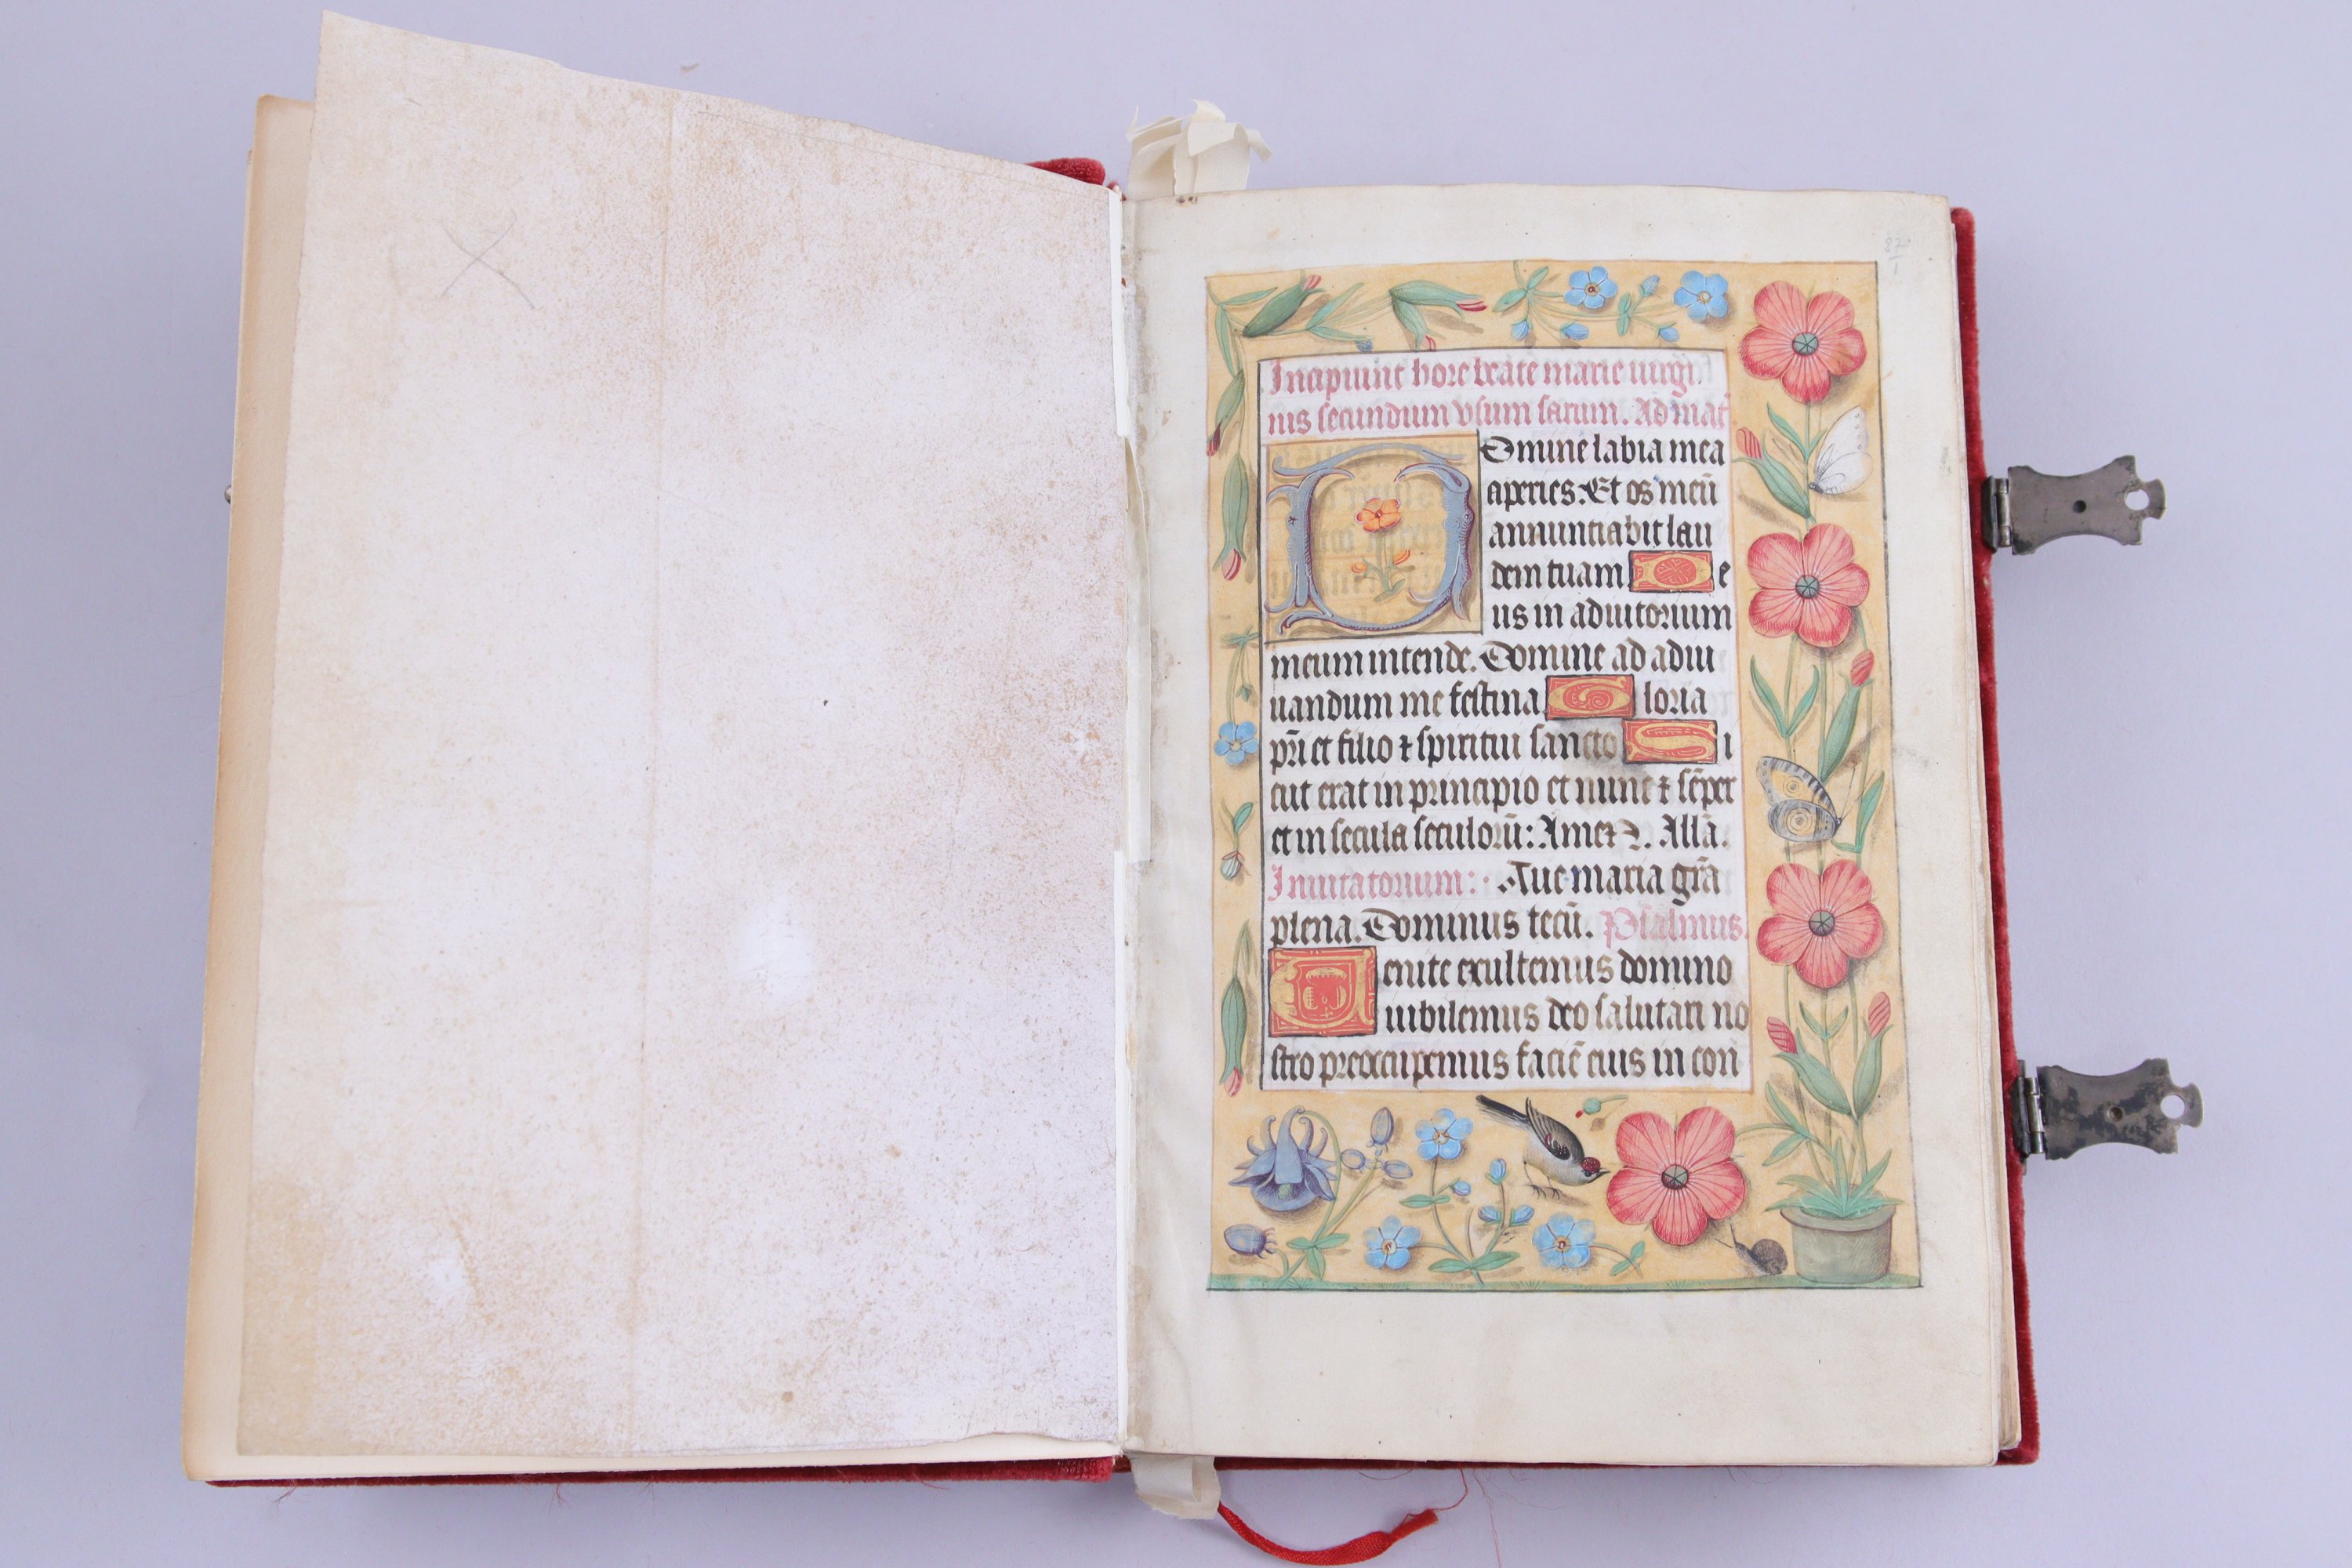 87
1
Incipiunt hore beate marie uirgi
nis secundum vsum sarum. Ad mat̄
Domine labia mea
aperies. Et os meū
annunciabit lau
dem tuam De
us in adiutorium
meum intende. Domine ad adiu
uandum me festina Gloria
pr̄i et filio ⁊ spiritui sancto Si
cut erat in principio et nunc ⁊ sēper
et in secula seculorū: Amen. Allā.
Inuitatorium: Aue maria grā
plena. Dominus tecū. Psalmus.
Uenite exultemus domino
iubilemus deo salutari no
stro preoccupemus faciē eius in con